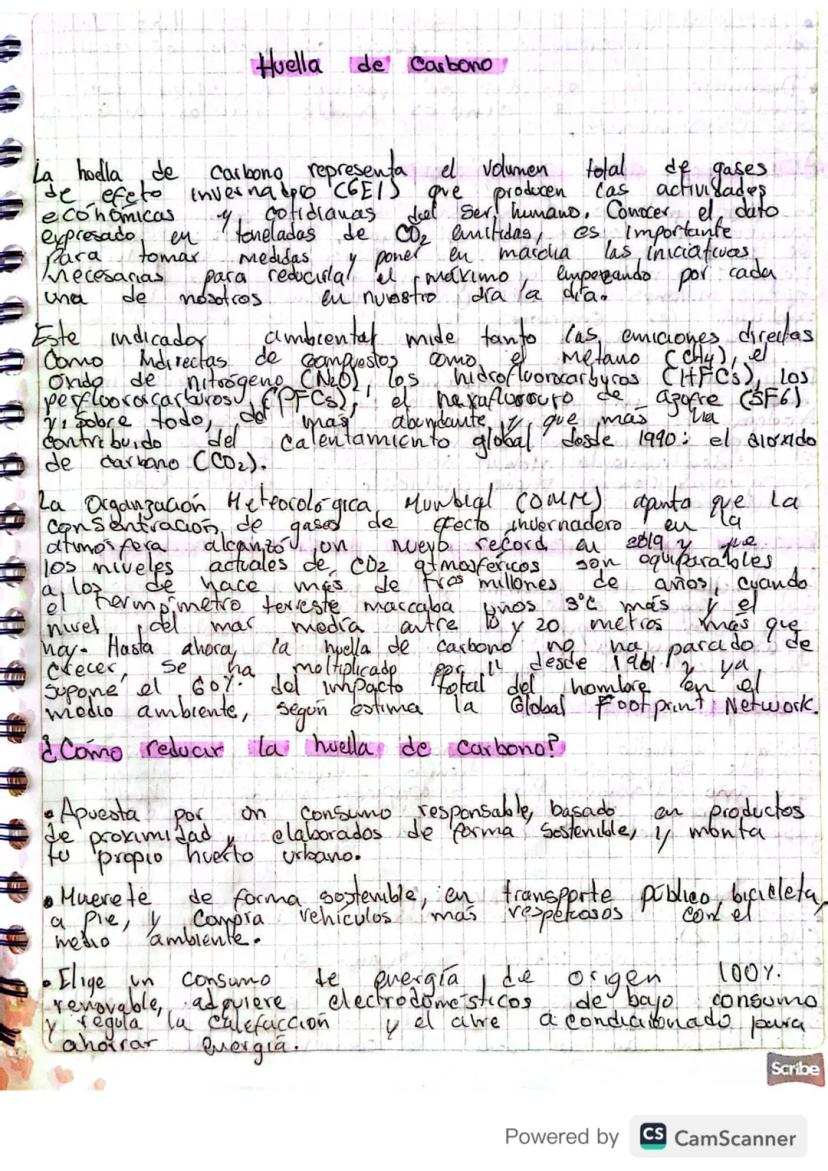 Huella de Carbono
La hoella de carbono representa el volumen total de gases
de efeto invernadero (GEI) que producen las actividades
económicas y cotidianas del ser humano. Conocer el dato
expresado en toneladas de CO2 emitidas, es importante
para tomar medidas y poner en marcha las iniciativas
necesarias para reducirla el máximo, empezando por cada
una de nosotros en nuestro día a día.
Este indicador ambiental mide tanto las emiciones directas
Como Indirectas de compuestos como el metano (CH4), el
Oxido de nitrógeno (N2O), los hidrofluorocarburos (HFCs), los
perfluorocarburos (PFCs), el hexafluoruro de azufre (SF6)
y, sobre todo, del más abundante y que más ha
contribuido del calentamiento global desde 1990: el dioxido
de carbono (CO2).
La Organización Meteorológica Mundial (OMM) apunta que la
consentiración de gases de efecto invernadero en la
atmosfera alcanzó un nuevo record en 2019 y que
los niveles actuales de CO2 atmosféricos son equiparables
a los de hace más de tres millones de años, cuando
el termómetro tereste marcaba unos 3°C más y el
nivel del mar media entre 10 y 20 metros más que
hoy. Hasta ahora, la huella de carbono no ha parado de
crecer, se ha moltiplicado por 11 desde 1961 y ya
supone el 60% del impacto total del hombre en el
medio ambiente, según estima la Global Footprint Network.
¿Como reducir la huella de carbono?
• Apuesta por un consumo responsable, basado en productos
de proximidad y elaborados de forma sostenible, y monta
tu propio huerto urbano.
• Muevete de forma sostenible, en transporte público, bicicleta,
a pie, y compra vehículos más respetosos con el
medio ambiente.
• Elige un consumo de energía de origen 100%
renovable, adquiere electrodomésticos de bajo consumo
y regula la calefacción y el aire acondicionado para
ahorrar energía.
Scribe
Powered by CS CamScanner